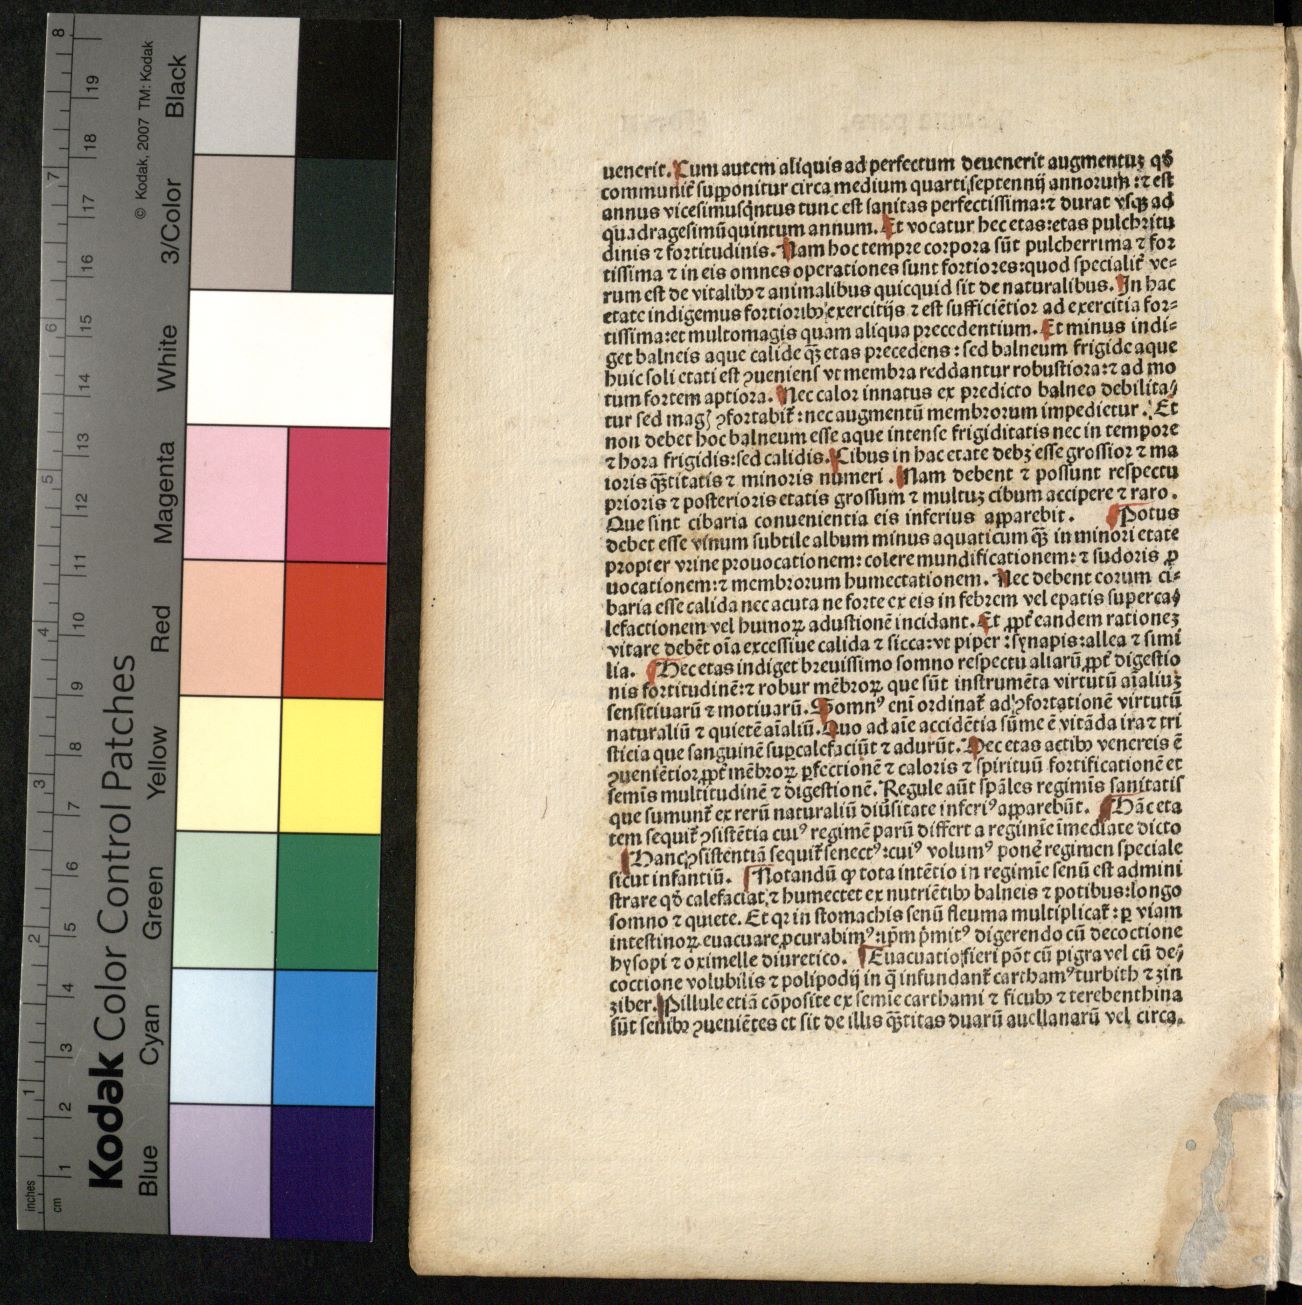 uenerit. Cum autem aliquis ad perfectum deuenerit augmentuꝫ qđ
communiť supponitur circa medium quarti septennij annorum : ⁊ est
annus vicesimusq̇ntus tunc est sanitas perfectissima: ⁊ durat vsqꝫ ad
quadragesimū quintum annum. Et vocatur hec etas: etas pulchritu
dinis ⁊ fortitudinis. Nam hoc tempre corpora sūt pulcherrima ⁊ for
tissima ⁊ in eis omnes operationes sunt fortiores: quod specialiť ve⸗
rum est de vitalibꝰ ⁊ animalibus quicquid sit de naturalibus. In hac
etate indigemus fortioribꝰ exercitijs ⁊ est sufficiētior ad exercitia for⸗
tissima: et multomagis quam aliqua precedentium. Et minus indi⸗
get balneis aque calide q̄ꝫ etas precedens : sed balneum frigide aque
huic soli etati est ꝯueniens vt membra reddantur robustiora: ⁊ ad mo
tum fortem aptiora. Nec calor innatus ex predicto balneo debilita⸗
tur sed mag̃ ꝯfortabiť : nec augmentū membrorum impedietur. Et
non debet hoc balneum esse aque intense frigiditatis nec in tempore
⁊ hora frigidis: sed calidis. Cibus in hac etate debꝫ esse grossior ⁊ ma
ioris q̄titatis ⁊ minoris numeri . Nam debent ⁊ possunt respectu
prioris ⁊ posterioris etatis grossum ⁊ multuꝫ cibum accipere ⁊ raro.
Que sint cibaria conuenientia eis inferius apparebit. Potus
debet esse vinum subtile album minus aquaticum q̄ꝫ in minori etate
propter vrine prouocationem: colere mundificationem: ⁊ sudoris ꝓ
uocationem: ⁊ membrorum humectationem. Nec debent eorum ci⸗
baria esse calida nec acuta ne forte ex eis in febrem vel epatis superca⸗
lefactionem vel humoꝝ adustionē incidant. Et ꝓpť eandem rationeꝫ
vitare debēt oīa excessiue calida ⁊ sicca: vt piper : synapis: allea ⁊ simi
lia. Hec etas indiget breuissimo somno respectu aliarū ꝓpť digestio
nis fortitudinē: ⁊ robur mēbroꝝ que sūt instrumēta virtutū aīaliuꝫ
sensitiuarū ⁊ motiuarū. Somnꝰ eni ordinať ad ꝯfortationē virtutū
naturaliū ⁊ quietē aīaliū. Quo ad aīe accidētia sūme ē vitāda ira ⁊ tri
sticia que sanguinē suꝑcalefaciūt ⁊ adurūt. Hec etas actibꝰ venereis ē
ꝯueniētior ꝓpť mēbroꝝ ꝑfectionē ⁊ caloris ⁊ spirituū fortificationē et
semīs multitudinē ⁊ digestionē. Regule aūt spāles regimīs sanitatis
que sumunť ex rerū naturaliū diūsitate inferiꝰ apparebūt. Hāc eta
tem sequiť ꝯsistētia cuiꝰ regimē parū differt a regimīe īmediate dicto
Hanc ꝯsistentiā sequiť senectꝰ: cuiꝰ volumꝰ ponē regimen speciale
sicut infantiū. Notandū ꝙ tota intētio in regimīe senū est admini
strare qđ calefaciat ⁊ humectet ex nutriētibꝰ balneis ⁊ potibus: longo
somno ⁊ quiete. Et qꝛ in stomachis senū fleuma multiplicať : ꝑ viam
intestinoꝝ euacuare ꝓcurabimꝰ: ip̄m p̄mitꝰ digerendo cū decoctione
hysopi ⁊ oximelle diuretico. Euacuatio fieri pōt cū pigra vel cū de⸗
coctione volubilis ⁊ polipodij in q̄ infundanť carthamꝰ turbith ⁊ zin
ziber. Pillule etiā cōposite ex semīe carthami ⁊ ficubꝰ ⁊ terebenthina
sūt senibꝰ ꝯueniētes et sit de illis q̄titas duarū auellanarū vel circa.
© Kodak, 2007 TM: Kodak
Kodak Color Control Patches
Blue Cyan Green Yellow Red Magenta White 3/Color Black
inches 1 2 3 4 5 6 7 8
cm 1 2 3 4 5 6 7 8 9 10 11 12 13 14 15 16 17 18 19